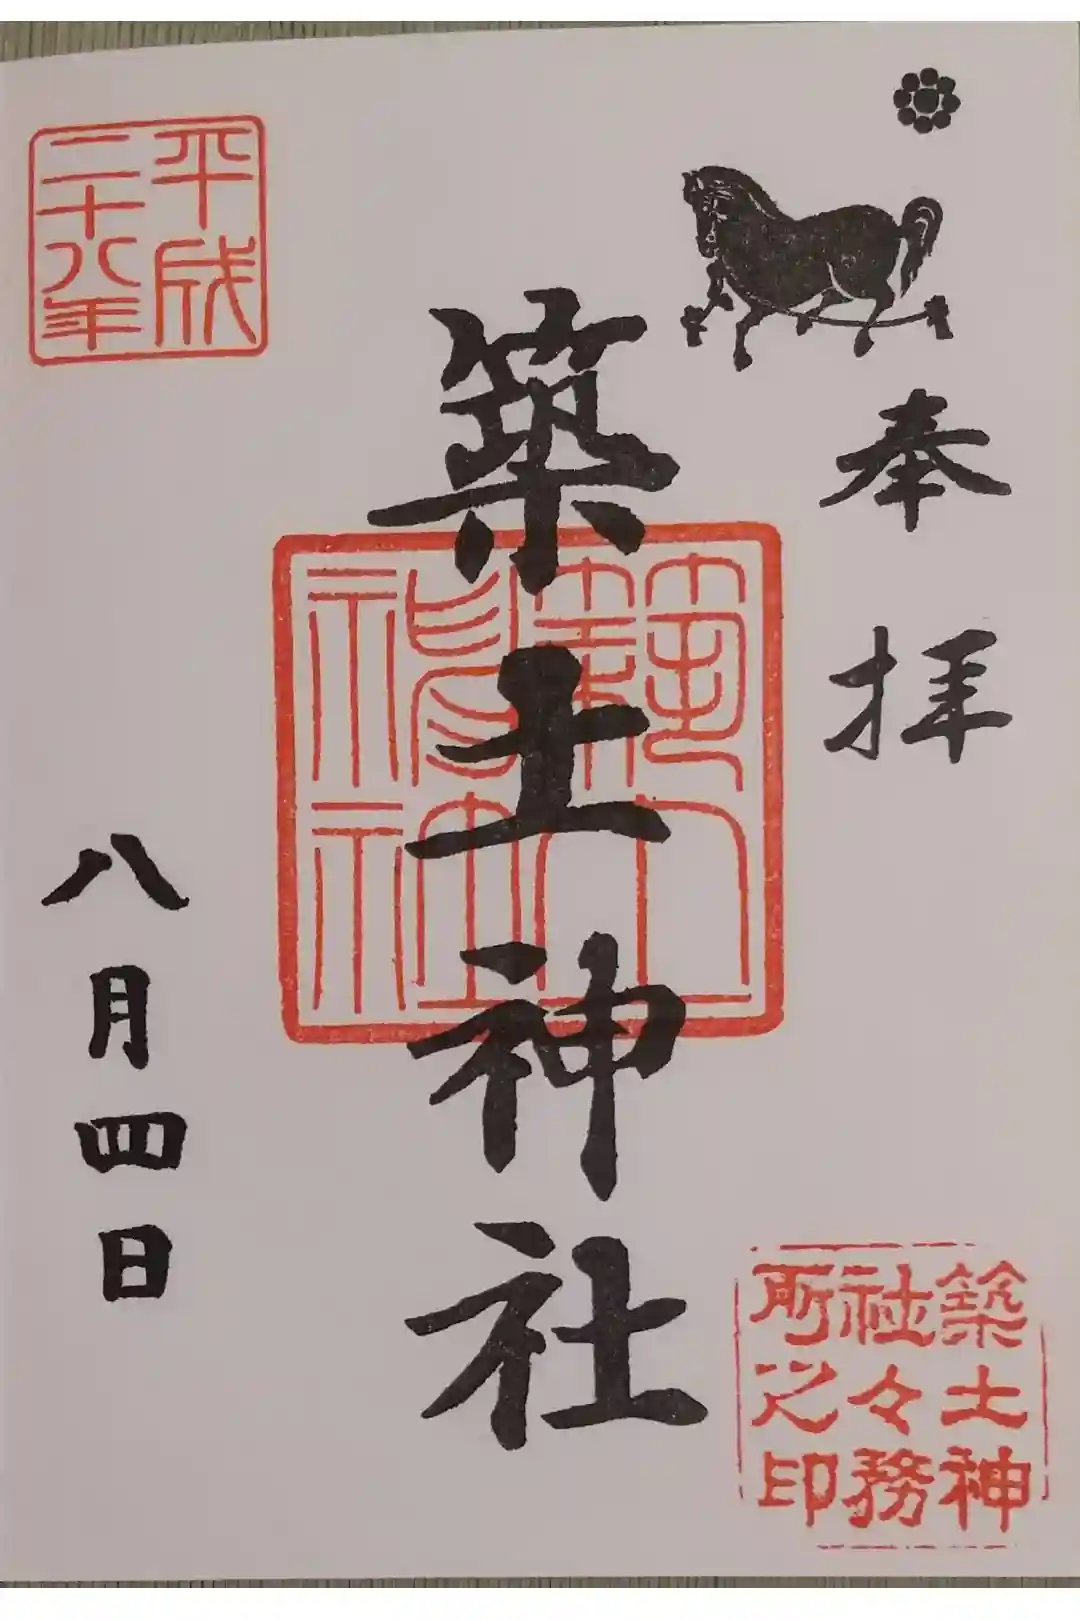 奉拝
築土神社
築土神
社々務
所之印
平成
二十八年
八月四日